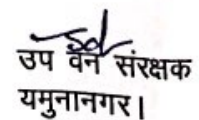 उप वन संरक्षक
यमुनानगर।